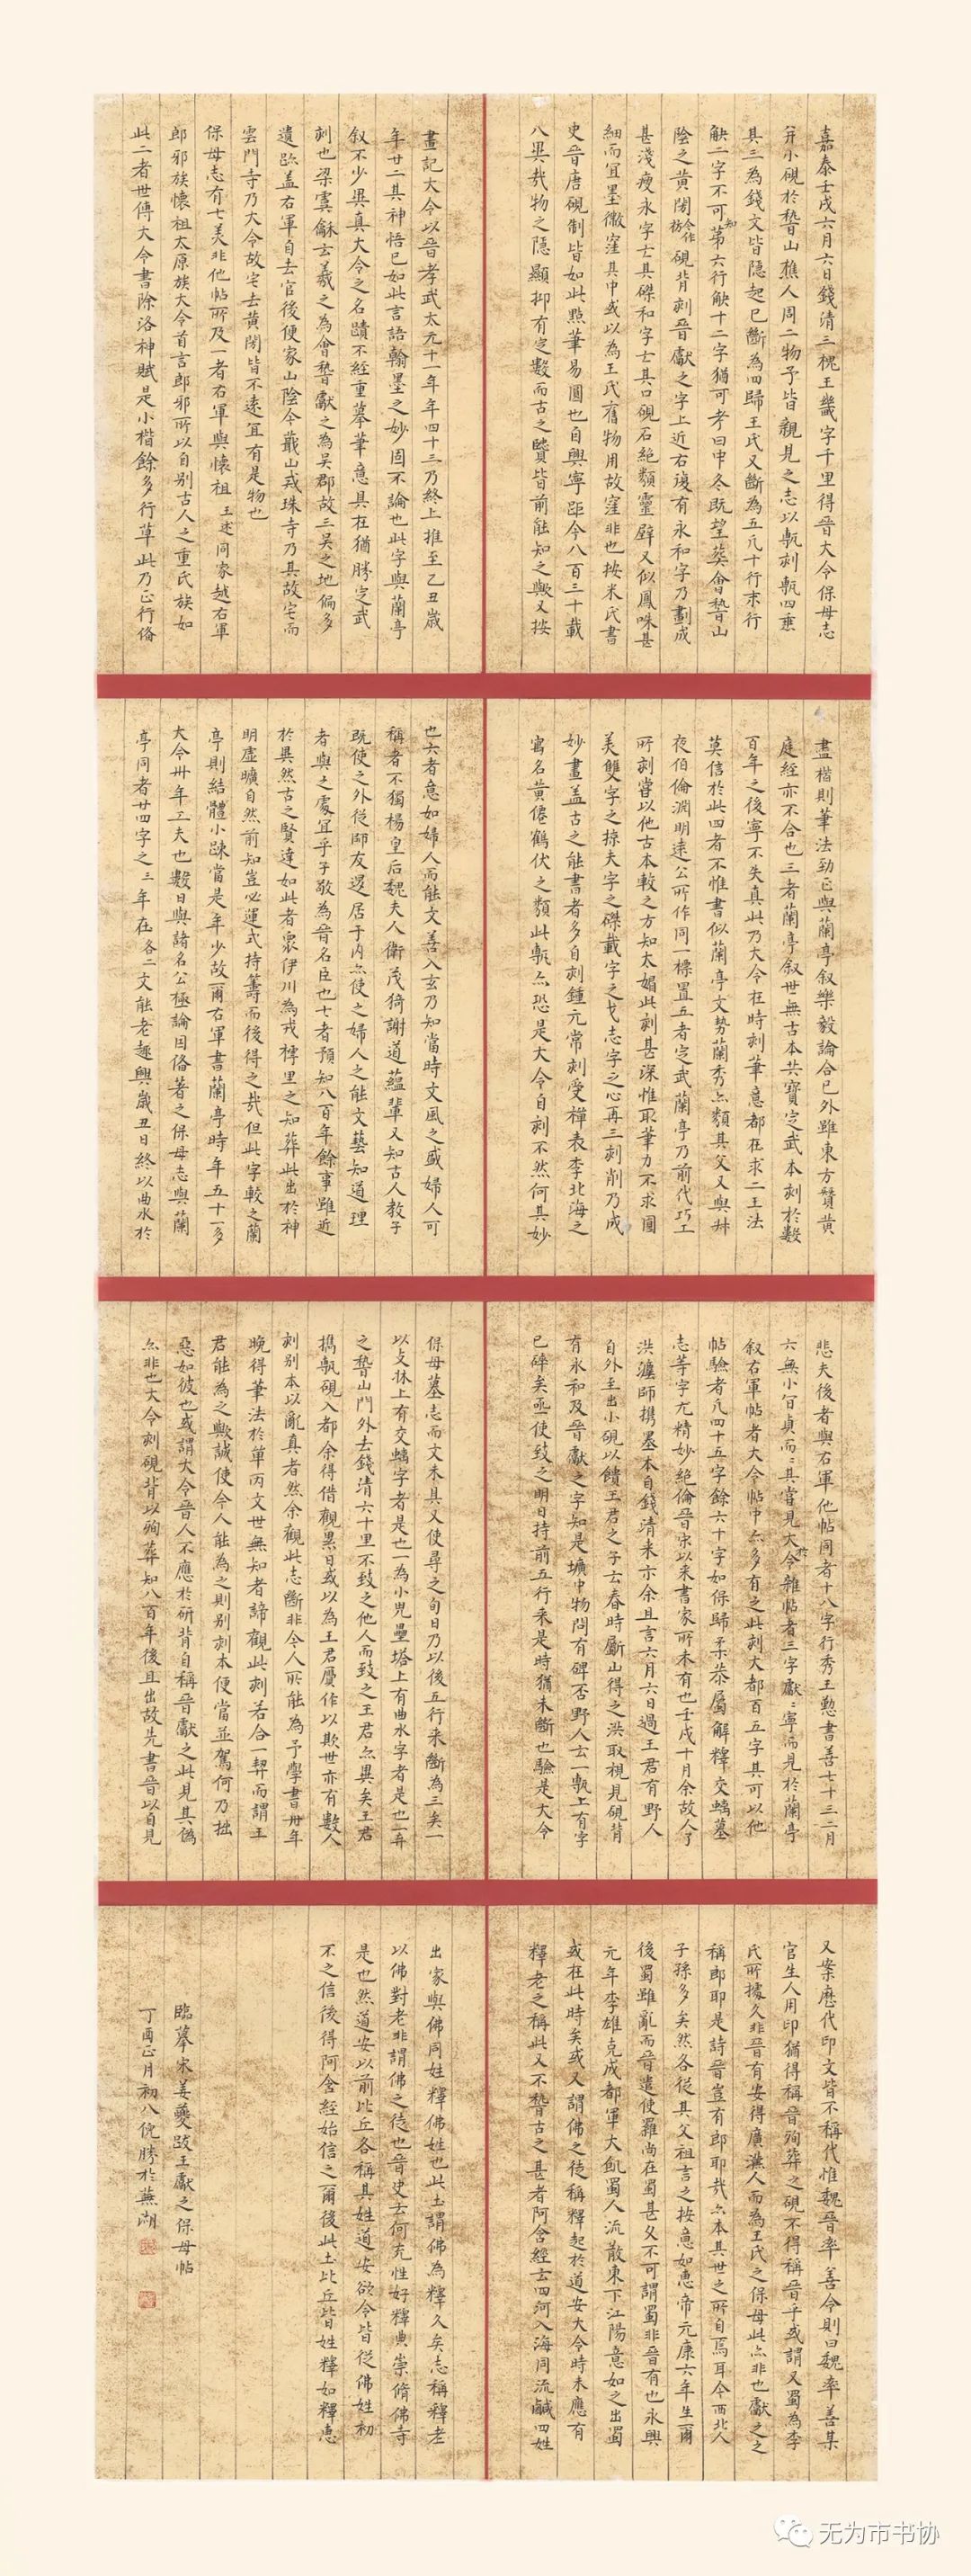 嘉泰壬戌六月六日錢清三槐王畿字千里得晉大令保母志
并小硯於嵇山樵人周二物予皆親見之志以甎刻甎四垂
其三為錢文皆隱起已斷為四歸王氏又斷為五凡十行末行
缺二字不可知第六行缺十二字猶可考曰中冬既望葬會嵇山
陰之黃閍令作枋硯背刻晉獻之字上近右復有永和字乃劃成
甚淺瘦永字亡其磔和字亡其口硯石絕類靈壁又似鳳咮甚
細而宜墨微窪其中或以為王氏舊物用故窪非也按米氏書
史晉唐硯制皆如此點筆易圓也自興寧距今八百三十載
八異哉物之隱顯抑有定數而古之賢皆前能知之歟又按
畫記大令以晉孝武太元十一年年四十三乃終上推至乙丑歲
年廿二其神悟已如此言語翰墨之妙固不論也此字與蘭亭
叙不少異真大令之名蹟不經重摹筆意具在猶勝定武
刻也梁虞龢云羲之為會嵇獻之為吳郡故三吳之地偏多
遺跡盖右軍自去官後便家山陰今蕺山戒珠寺乃其故宅而
雲門寺乃大令故宅去黃閍皆不遠宜有是物也
保母志有七美非他帖所及一者右軍與懷祖王述同家越右軍
郎邪族懷祖太原族大令首言郎邪所以自别古人之重氏族如
此二者世傳大令書除洛神賦是小楷餘多行草此乃正行俻
盡楷則筆法勁正與蘭亭叙樂毅論合已外雖東方贊黃
庭經亦不合也三者蘭亭叙世無古本共寶定武本刻於數
百年之後寧不失真此乃大令在時刻筆意都在求二王法
莫信於此四者不惟書似蘭亭文勢蘭秀亦類其父又與叔
夜伯倫淵明遠公所作同一標置五者定武蘭亭乃前代巧工
所刻嘗以他古本較之方知太媚此刻甚深惟取筆力不求圓
美雙字之掠夫字之磔載字之戈志字之心再三刻削乃成
妙畫盖古之能書者多自刻鍾元常刻受禪表李北海之
寫名黃僊鶴伏之類此甎亦恐是大令自刻不然何其妙
也六者意如婦人而能文善入玄乃知當時文風之盛婦人可
稱者不獨楊皇后魏夫人衛茂猗謝道蘊輩又知古人教子
既使之外從師友退居于内亦使之婦人之能文藝知道理
者與之處宜乎子敬為晉名臣也七者預知八百年餘事雖近
於異然古之賢達如此者衆伊川為戎樗里之知葬此出於神
明虛曠自然前知豈必運式持籌而後得之哉但此字較之蘭
亭則結體小踈當是年少故爾右軍書蘭亭時年五十一多
大令卅年工夫也數日與諸名公極論因俻著之保母志與蘭
亭同者廿四字之三年在各二文能老趣興歲丑日終以曲水於
悲夫後者與右軍他帖同者十八字行秀王懃書善七十三二月
六無小百貞而二其嘗見於大令雜帖者三字獻二寧而見於蘭亭
叙右軍帖者大令帖中亦多有之此刻大都百五字其可以他
帖驗者凡四十五字餘六十字如保歸柔恭屬解釋交螭墓
志等字尤精妙絕倫晉宋以来書家所未有也壬戌十月余故人了
洪瀍師携墨本自錢清来示余且言六月六日過王君有野人
自外至出小硯以饋王君之子云春時斸山得之洪取視見硯背
有永和及晉獻之字知是壙中物問有碑否野人云一甎上有字
已碎矣亟使致之明日持前五行来是時猶未斷也驗是大令
保母墓志而文未具又使尋之旬日乃以後五行来斷為三矣一
以支牀上有交螭字者是也一為小兒壘塔上有曲水字者是也二弃
之嵇山門外去錢清六十里不致之他人而致之王君亦異矣王君
携甎硯入都余得借觀累日或以為王君贋作以欺世亦有數人
刻别本以亂真者然余觀此志斷非今人所能為予學書卅年
晚得筆法於單丙文世無知者諦觀此刻若合一契而謂王
君能為之歟誠使今人能為之則别刻本便當並駕何乃拙
惡如彼也或謂大令晉人不應於研背自稱晉獻之此見其僞
亦非也大令刻硯背以殉葬知八百年後且出故先書晉以自見
又案歷代印文皆不稱代惟魏晉率善令則曰魏率善某
官生人用印猶得稱晉殉葬之硯不得稱晉乎或謂又蜀為李
氏所據久非晉有安得廣漢人而為王氏之保母此亦非也獻之之
稱郎耶是詩晉豈有郎耶哉亦本其世之所自焉耳今西北人
子孫多矣然各從其父祖言之按意如惠帝元康六年生爾
後蜀雖亂而晉遣使羅尚在蜀甚久不可謂蜀非晉有也永興
元年李雄克成都軍大飢蜀人流散東下江陽意如之出蜀
或在此時矣或又謂佛之徒稱釋起於道安大令時未應有
釋老之稱此又不嵇古之甚者阿含經云四河入海同流鹹四姓
出家與佛同姓釋佛姓也此土謂佛為釋久矣志稱釋老
以佛對老非謂佛之徒也晉史云何充性好釋典崇脩佛寺
是也然道安以前比丘各稱其姓道安欲令皆從佛姓初
不之信後得阿含經始信之爾後此土比丘皆姓釋如釋惠
臨摹宋姜夔跋王獻之保母帖
丁酉正月初八倪勝於蕪湖
无为市书协